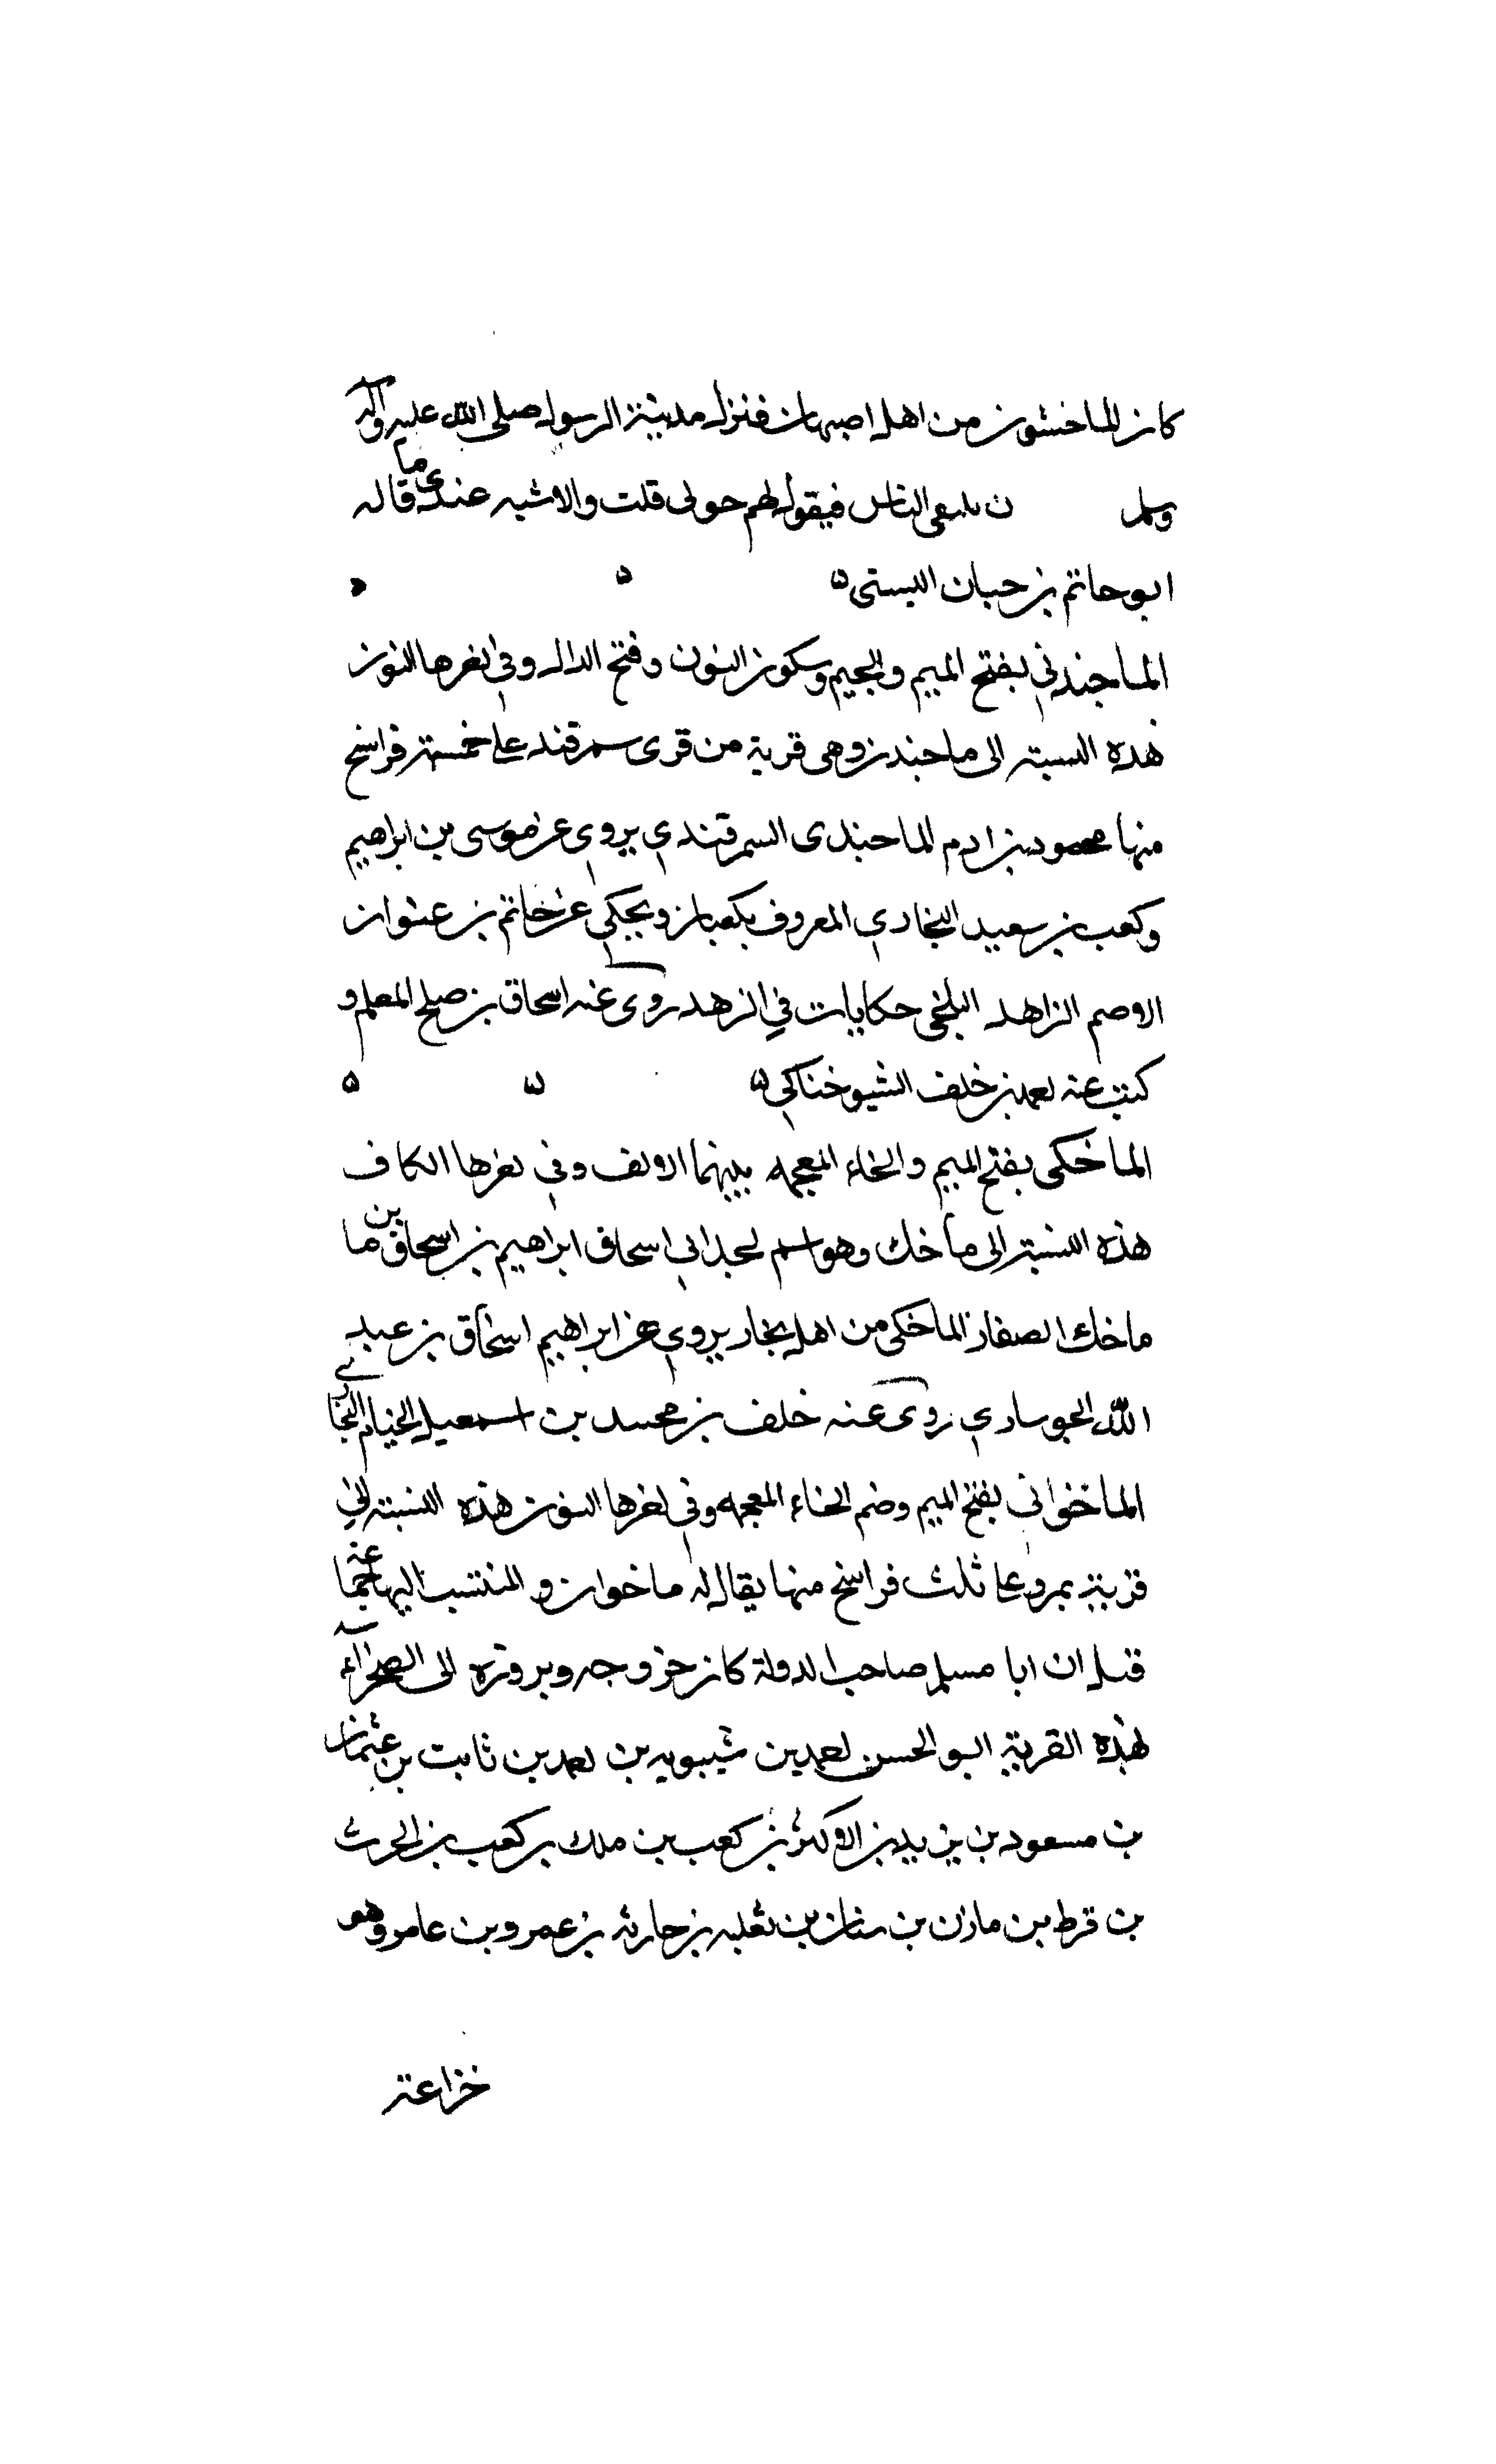 كان الماخشون من اهل اصبهان فنزل مدينة الرسول صلى الله عليه وآله
وسلم ن يلقى الناس فيقول لهم جوني قلت والاشبه عندي ما قاله
ابو حاتم بن حبان البستي ۵ ۵
الماجندني بفتح الميم والجيم وسكون النون وفتح الدال وفي اخرها النون
هذه النسبة الى ماجندن وهي قرية من قرى سمرقند على خمسة فراسخ
منها محمود بن ادم الماجندى السمرقندي يروي عن موسى بن ابراهيم
وكعب بن سعيد البخاري المعروف بكعبان ويحكي عن حاتم بن عنوان
الاصم الزاهد البلخي حكايات في الزهد روى عنه اسحاق بن صلح المعلم و
كتب عنه احمد بن خلف الشيوخناكي ۵ ۵ ۵
الماخكي بفتح الميم والخاء المعجمه بينهما الالف وفي اخرها الكاف
هذه النسبة الى ماخك وهو اسم لجد ابي اسحاق ابراهيم بن اسحاق بن ما
ماخك الصفار الماخكي من اهل بخار يروي عن ابراهيم اسحاق بن عبد
الله الجوساري روى عنه خلف بن محمد بن اسمعيل الخيام البخاري
الماخواني بفتح الميم وضم الخاء المعجمه وفي اخرها النون هذه النسبة الى
قرية بمرو على ثلث فراسخ منها يقال له ماخوان والمنتسب اليها جماعة
قيل ان ابا مسلم صاحب الدولة كان خروجه وبروزه الى الصحراء
بهذه القرية ابو الحسن احمد بن شبويه بن احمد بن ثابت بن عثمان
بن مسعود بن يزيد بن الاكبر بن كعب بن ملك بن كعب بن الحرث
بن قرط بن مازن بن سنان بن ثعلبه بن حارثه بن عمرو بن عامر وهو
خزاعة